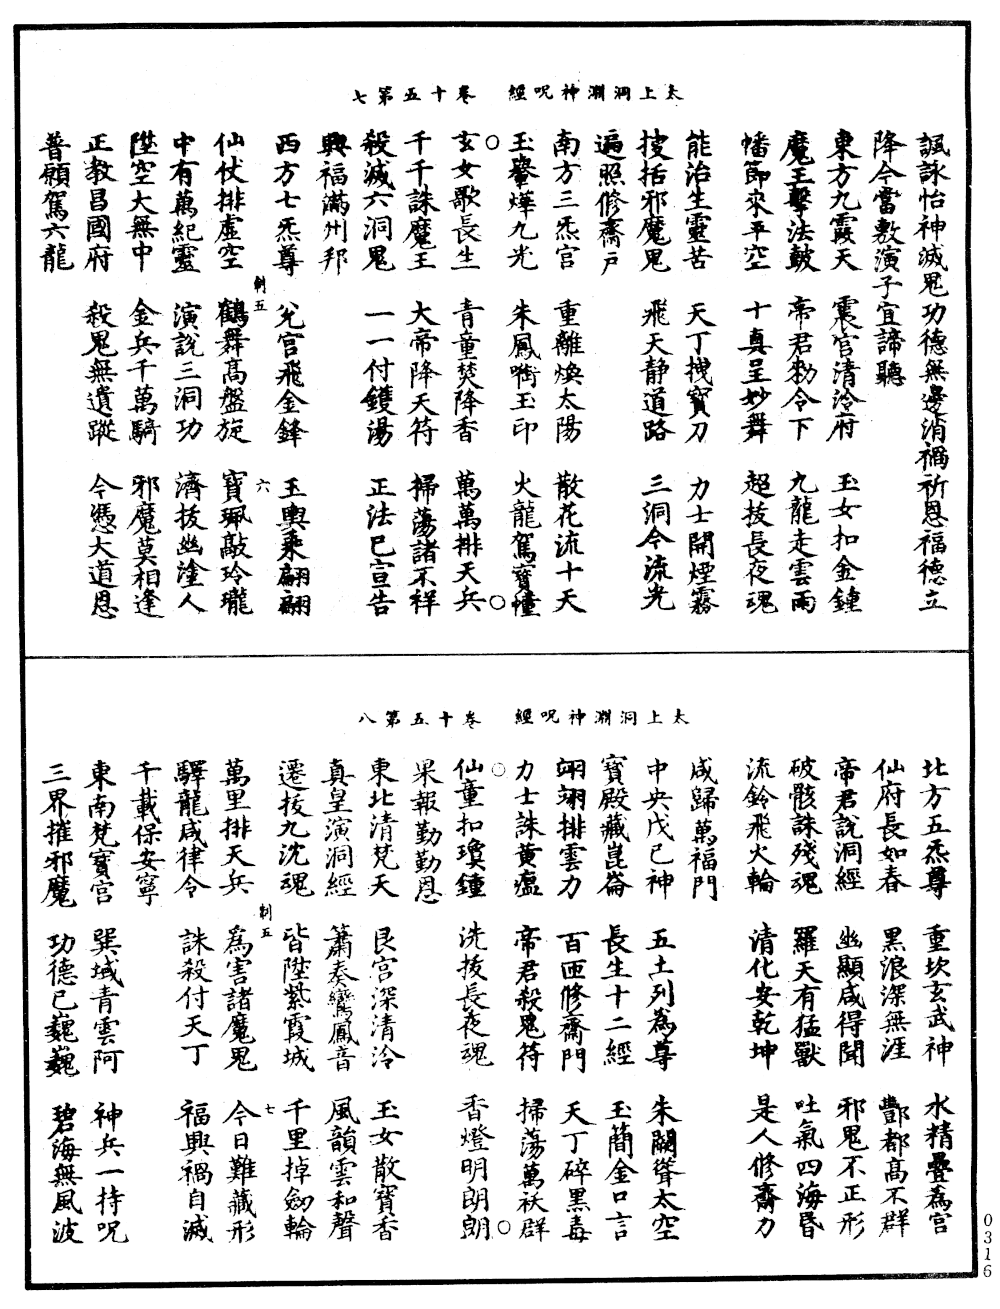 太上洞淵神呪經　卷十五第七
諷詠怡神滅鬼功德無邊消禍祈恩福德立
降今當敷演子宜諦聽
東方九霞天　震宮清泠府　玉女扣金鍾
魔王擊法鼓　帝君勑令下　九龍走雲雨
幡節來平空　十真呈妙舞　超拔長夜魂
能治生靈苦　天丁拽寶刀　力士開煙霧
搜括邪魔鬼　飛天静道路　三洞今流光
遍照修齋戶
南方三炁宮　重離煥太陽　散花流十天
玉輦燁九光　朱鳳啣玉印　火龍駕寶幢
玄女歌長生　青童焚降香　萬萬排天兵
千千誅魔王　大帝降天符　掃蕩諸不祥
殺滅六洞鬼　一一付鑊湯　正法已宣告
興福滿州邦
西方七炁尊　兌宮飛金鋒　玉輿乘翩翩
制五　六
仙仗排虛空　鶴舞高盤旋　寶珮敲玲瓏
中有萬紀靈　演說三洞功　濟拔幽塗人
陞空大無中　金兵千萬騎　邪魔莫相逢
正教昌國府　殺鬼無遺蹤　今憑大道恩
普願駕六龍
太上洞淵神呪經　卷十五第八
北方五炁尊　重坎玄武神　水精疊為宮
仙府長如春　黑浪深無涯　酆都高不群
帝君說洞經　幽顯咸得聞　邪鬼不正形
破骸誅殘魂　羅天有猛獸　吐氣四海昏
流鈴飛火輪　清化安乾坤　是人修齋力
咸歸萬福門
中央戊己神　五土列為尊　朱闕聳太空
寶殿藏崑崙　長生十二經　玉簡金口言
翊翊排雲力　百匝修齋門　天丁碎黑毒
力士誅黃瘟　帝君殺鬼符　掃蕩萬祅群
仙童扣瓊鍾　洗拔長夜魂　香燈明朗朗
果報勤勤恩
東北清梵天　艮宮深清泠　玉女散寶香
真皇演洞經　蕭奏鸞鳳音　風韻雲和聲
遷拔九沈魂　皆陞紫霞城　千里掉劔輪
制五　七
萬里排天兵　為害諸魔鬼　今日難藏形
驛龍咸律令　誅殺付天丁　福興禍自滅
千載保安寧
東南梵寶宮　巽域青雲阿　神兵一持呪
三界摧邪魔　功德已巍巍　碧海無風波
0316